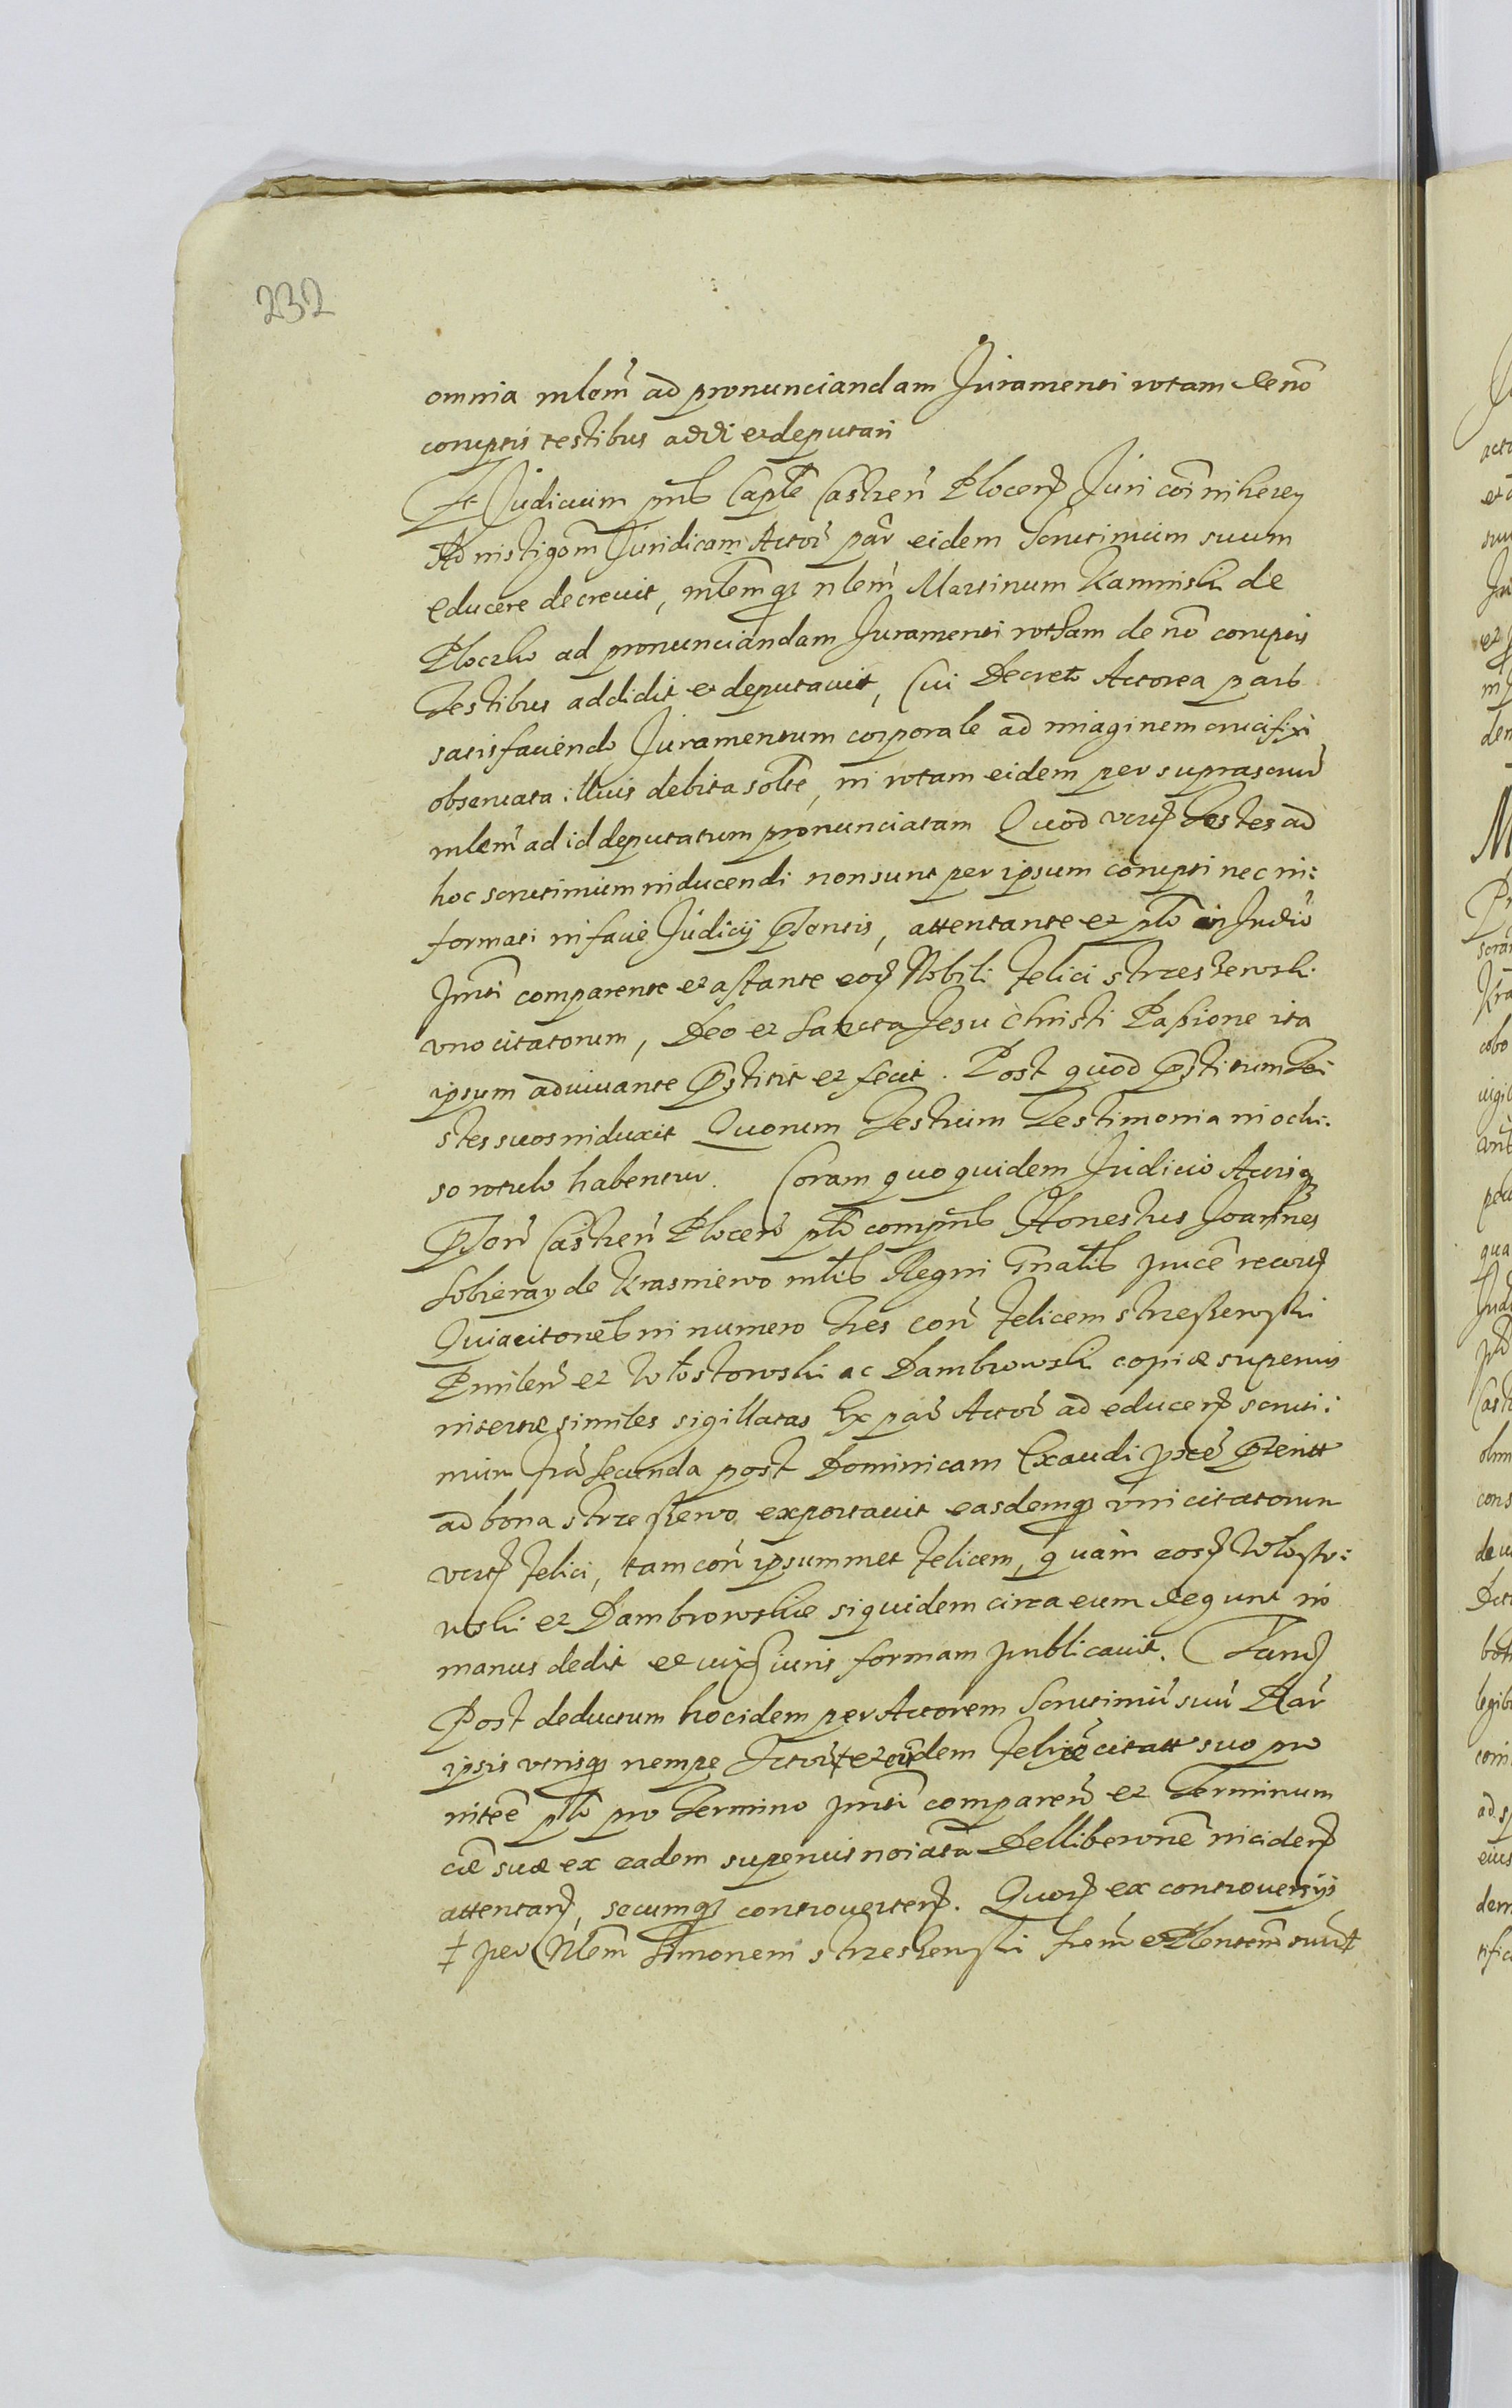 232
omnia mlem̄ ad pronunciandam Juramenti rotam de nō
coruptis testibus addi et deputari
Et Judicium pn̄s Capl̄e Castren̄ Plocen̄ Juri cōi inherey
Ad instigōm Juridicam Actor̄ par̄ eidem Scrutinium suum
educere decrevit, mlem̄q3 nlem̄ Martinum Kaminski de
Ploczko ad pronunciandam Juramenti rotham de nō coruptis
Testibus addidit et deputavit, Cui Decreto Actorea pars
satisfaciendo Juramentum corporale ad imaginem crucifixi
observata illius debita solt̄e, in rotam eidem per suprascrip̄
mlem̄ ad id deputatum pronunciatam Quod vers Testes ad
hoc scrutinium inducendi non sunt per ipsum corupti nec in:
formati in facie Judicij P̄sentis, attentante et pt̄o in Judio
Jmti comparente et astante eog Nobili Felici Strzeszewski
uno citatorum, Deo et Sancta Jesu Christi Passione ita
ipsum adiuvante P̄stitit et fecit. Post quod P̄stitum Te:
stes suos induxit Quorum Testium Testimonia in oclu:
so rotulo habentur. Coram quo quidem Judicio Actisq3
P̄sen̄ Castren̄ Plocen̄ pt̄o compn̄s Honestus Joannes
Sobieray de Krasniewo mt̄is Regni Gn̄alis Jurice recog
Quia citones in numero Tres con̄ Felicem Strzeszewski
Pmilen̄ et Wlostowski ac Dambrowski copiæ superius
insertæ similes sigillatas Ex par̄ Actor̄ ad educen̄ scruti:
nium Fra Secunda post Dominicam Exaudi p̄xe P̄terit
ad bona Strzeszewo exportavit easdemq3 uni citatorum
vers Felici, tam con̄ ipsummet Felicem, quam eos Wlosto:
wski et Dambrowskie siquidem circa eum degunt in
manus dedit et iuxta iuris formam publicavit. Tand
Post deductum hoc idem per Actorem Scrutiniū suū Par
ipsis utrisq3 nempe Actor̄ ‡ et eidem Felice citatt suo pro
inteē pt̄o pro Termino Jmti comparen̄ et Terminum
cæ suæ ex eadem superius noiata Dellibeōne inciden̄
attentan̄, secumq3 controverten̄. Quor ex controversijs
‡ per Nlem̄ Simonem Strzeszewski frem̄ et Plentem̄ suū ‡